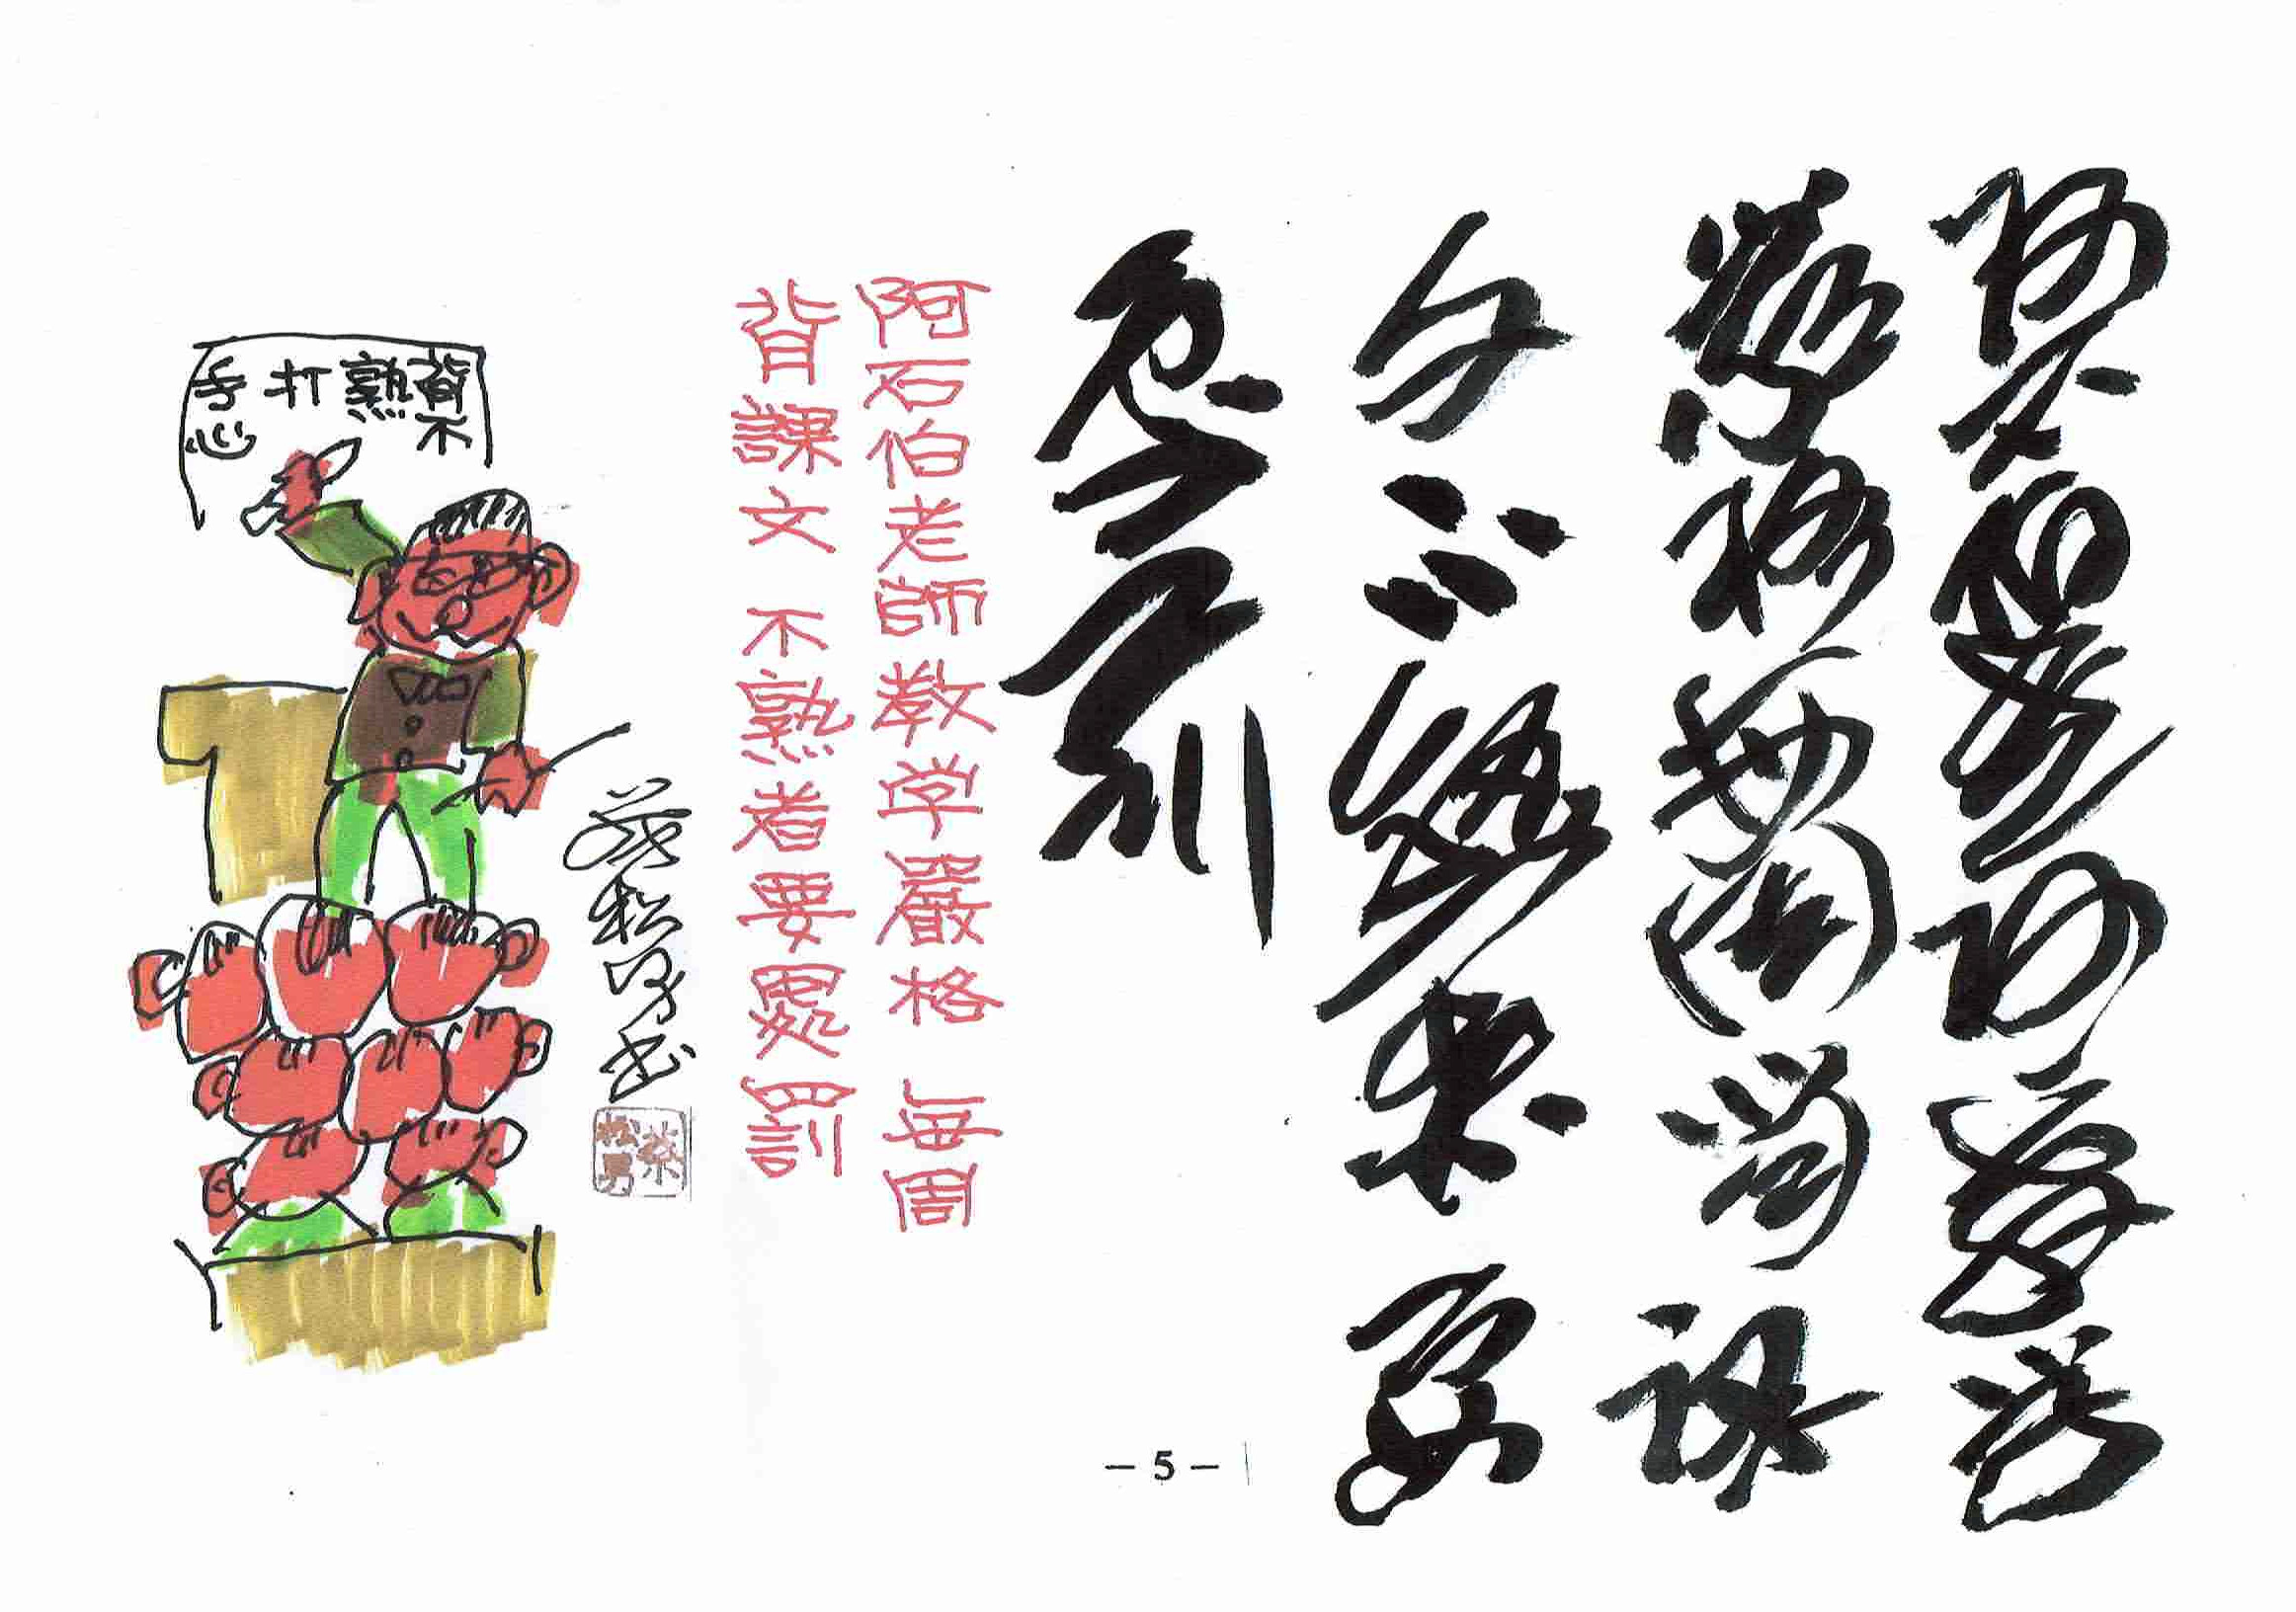 阿石伯老師教学
嚴格每周背課
文不熟者要
處罰
阿石伯老師教学嚴格 每周
背課文 不熟者要處罰
蔡松男书
蔡松男
背不
熟
打
手心
– 5 –